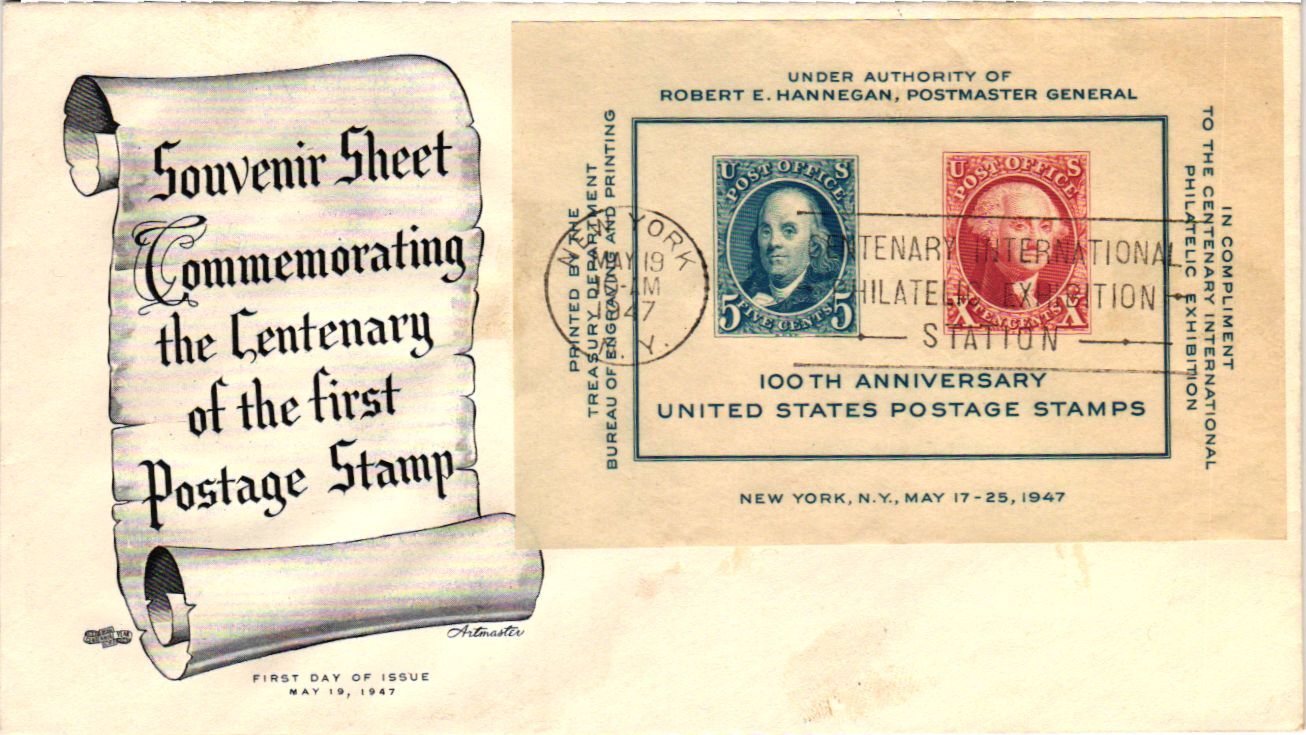 Souvenir Sheet
Commemorating
the Centenary
of the first
Postage Stamp
Artmaster
FIRST DAY OF ISSUE
MAY 19, 1947
UNDER AUTHORITY OF
ROBERT E. HANNEGAN, POSTMASTER GENERAL
PRINTED BY THE
TREASURY DEPARTMENT
BUREAU OF ENGRAVING AND PRINTING
U S
POST OFFICE
5 FIVE CENTS 5
U S
POST OFFICE
X TEN CENTS X
NEW YORK
MAY 19
AM
1947
N. Y.
CENTENARY INTERNATIONAL
PHILATELIC EXHIBITION
STATION
100TH ANNIVERSARY
UNITED STATES POSTAGE STAMPS
IN COMPLIMENT
TO THE CENTENARY INTERNATIONAL
PHILATELIC EXHIBITION
NEW YORK, N.Y., MAY 17-25, 1947